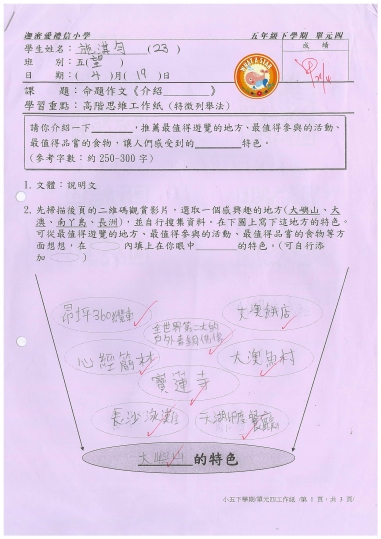 迦密愛禮信小學 五年級下學期 單元四
學生姓名：施淇勻(23) 成績
班 別：五(望)
日 期：(4)月(19)日
課 題：命題作文《介紹________》
學習重點：高階思維工作紙 (特徵列舉法)
請你介紹一下________，推薦最值得遊覽的地方、最值得參與的活動、
最值得品嘗的食物，讓人們感受到的________特色。
(參考字數：約 250-300 字)
1. 文體：說明文
2. 先掃描後頁的二維碼觀賞影片，選取一個感興趣的地方(大嶼山、大
澳、南丫島、長洲)，並自行搜集資料，在下圖上寫下這地方的特色。
可從最值得遊覽的地方、最值得參與的活動、最值得品嘗的食物等方
面想想，在 內填上在你眼中________的特色。(可自行添
加 )
昂坪360纜車
全世界第二大的
戶外青銅佛像
大澳餅店
心經簡林
大澳漁村
寶蓮寺
長沙泳灘
大嶼山的特色
小五下學期/單元四工作紙 /第 1 頁，共 3 頁/